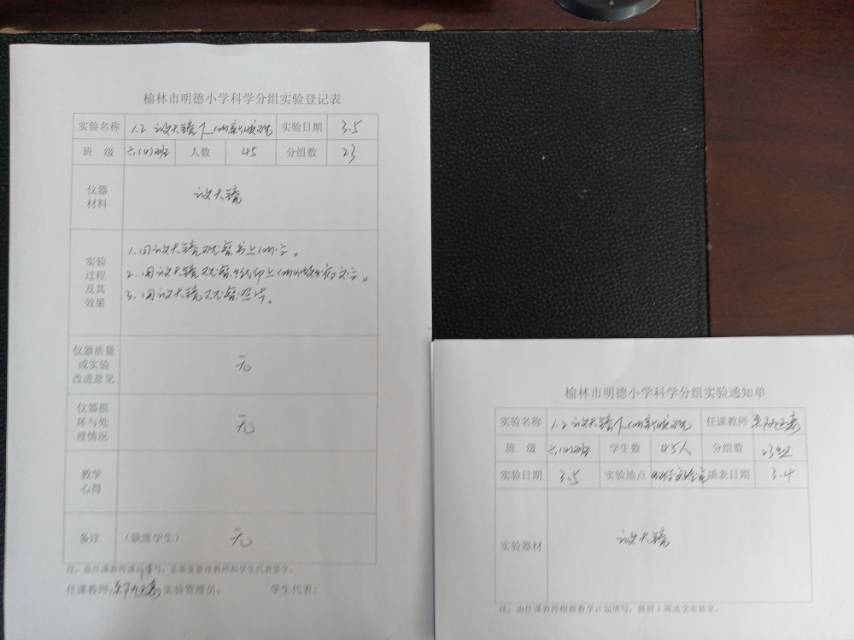 榆林市明德小学科学分组实验登记表
实验名称 1.2 放大镜下的新发现 实验日期 3.5
班 级 六(4)班 人数 45 分组数 23
仪器
材料
放大镜
实验
过程
及其
效果
1. 用放大镜观察书上的字。
2. 用放大镜观察
3. 用放大镜观察照片。
仪器质量
或实验
改进意见
无
仪器损
坏与处
理情况
无
教学
心得
备注 (缺席学生) 无
任课教师: 实验管理员: 学生代表:
榆林市明德小学科学分组实验通知单
实验名称 1.2 放大镜下的新发现 任课教师
班 级 六(4)班 学生数 45人 分组数 23组
实验日期 3.5 实验地点 填表日期 3.4
实验器材 放大镜